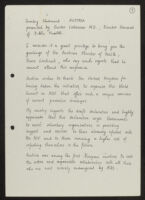 1
Sunday Statement AUSTRIA
presented by Gunther Liebeswar M.D., Director General
of Public Health.
I consider it a great privilege to bring you the
greetings of the Austrian Minister of Health,
who very much regrets that he
cannot attend this conference.
Austria wishes to thank the United Kingdom for
having taken the initiative to organise this World
Summit on AIDS that offers such a unique overview
of current preventive strategies.
My country supports the draft declaration and highly
appreciates that this declaration urges Governments
to assist voluntary organisations in providing
support and services to those already infected with
the HIV and to those running a higher risk of
infecting themselves in the future.
Austria was among the first European countries to seek
the active and responsible relationship with all those
who are most severely endangered by AIDS.